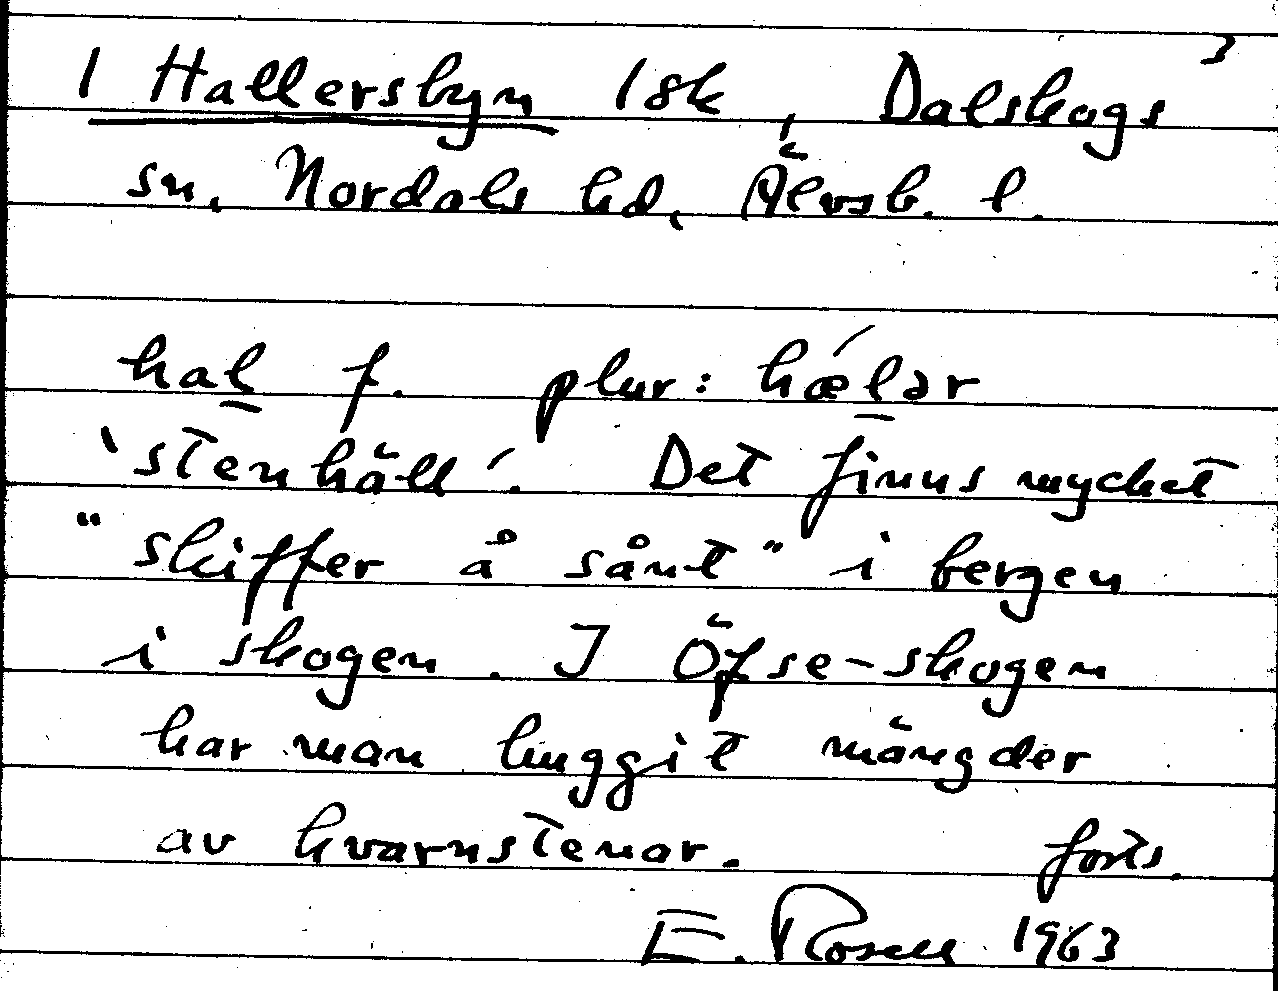 1 Hallersbyn 1 sk, Dalskogs
sn, Nordals hd, Älvsb. l.
hal f. plur: hælər
'stenhäll'. Det finns mycket
"skiffer å sånt" i bergen
i skogen. I Öfse-skogen
har man huggit mängder
av kvarnstenar. forts.
E. Rosell 1963